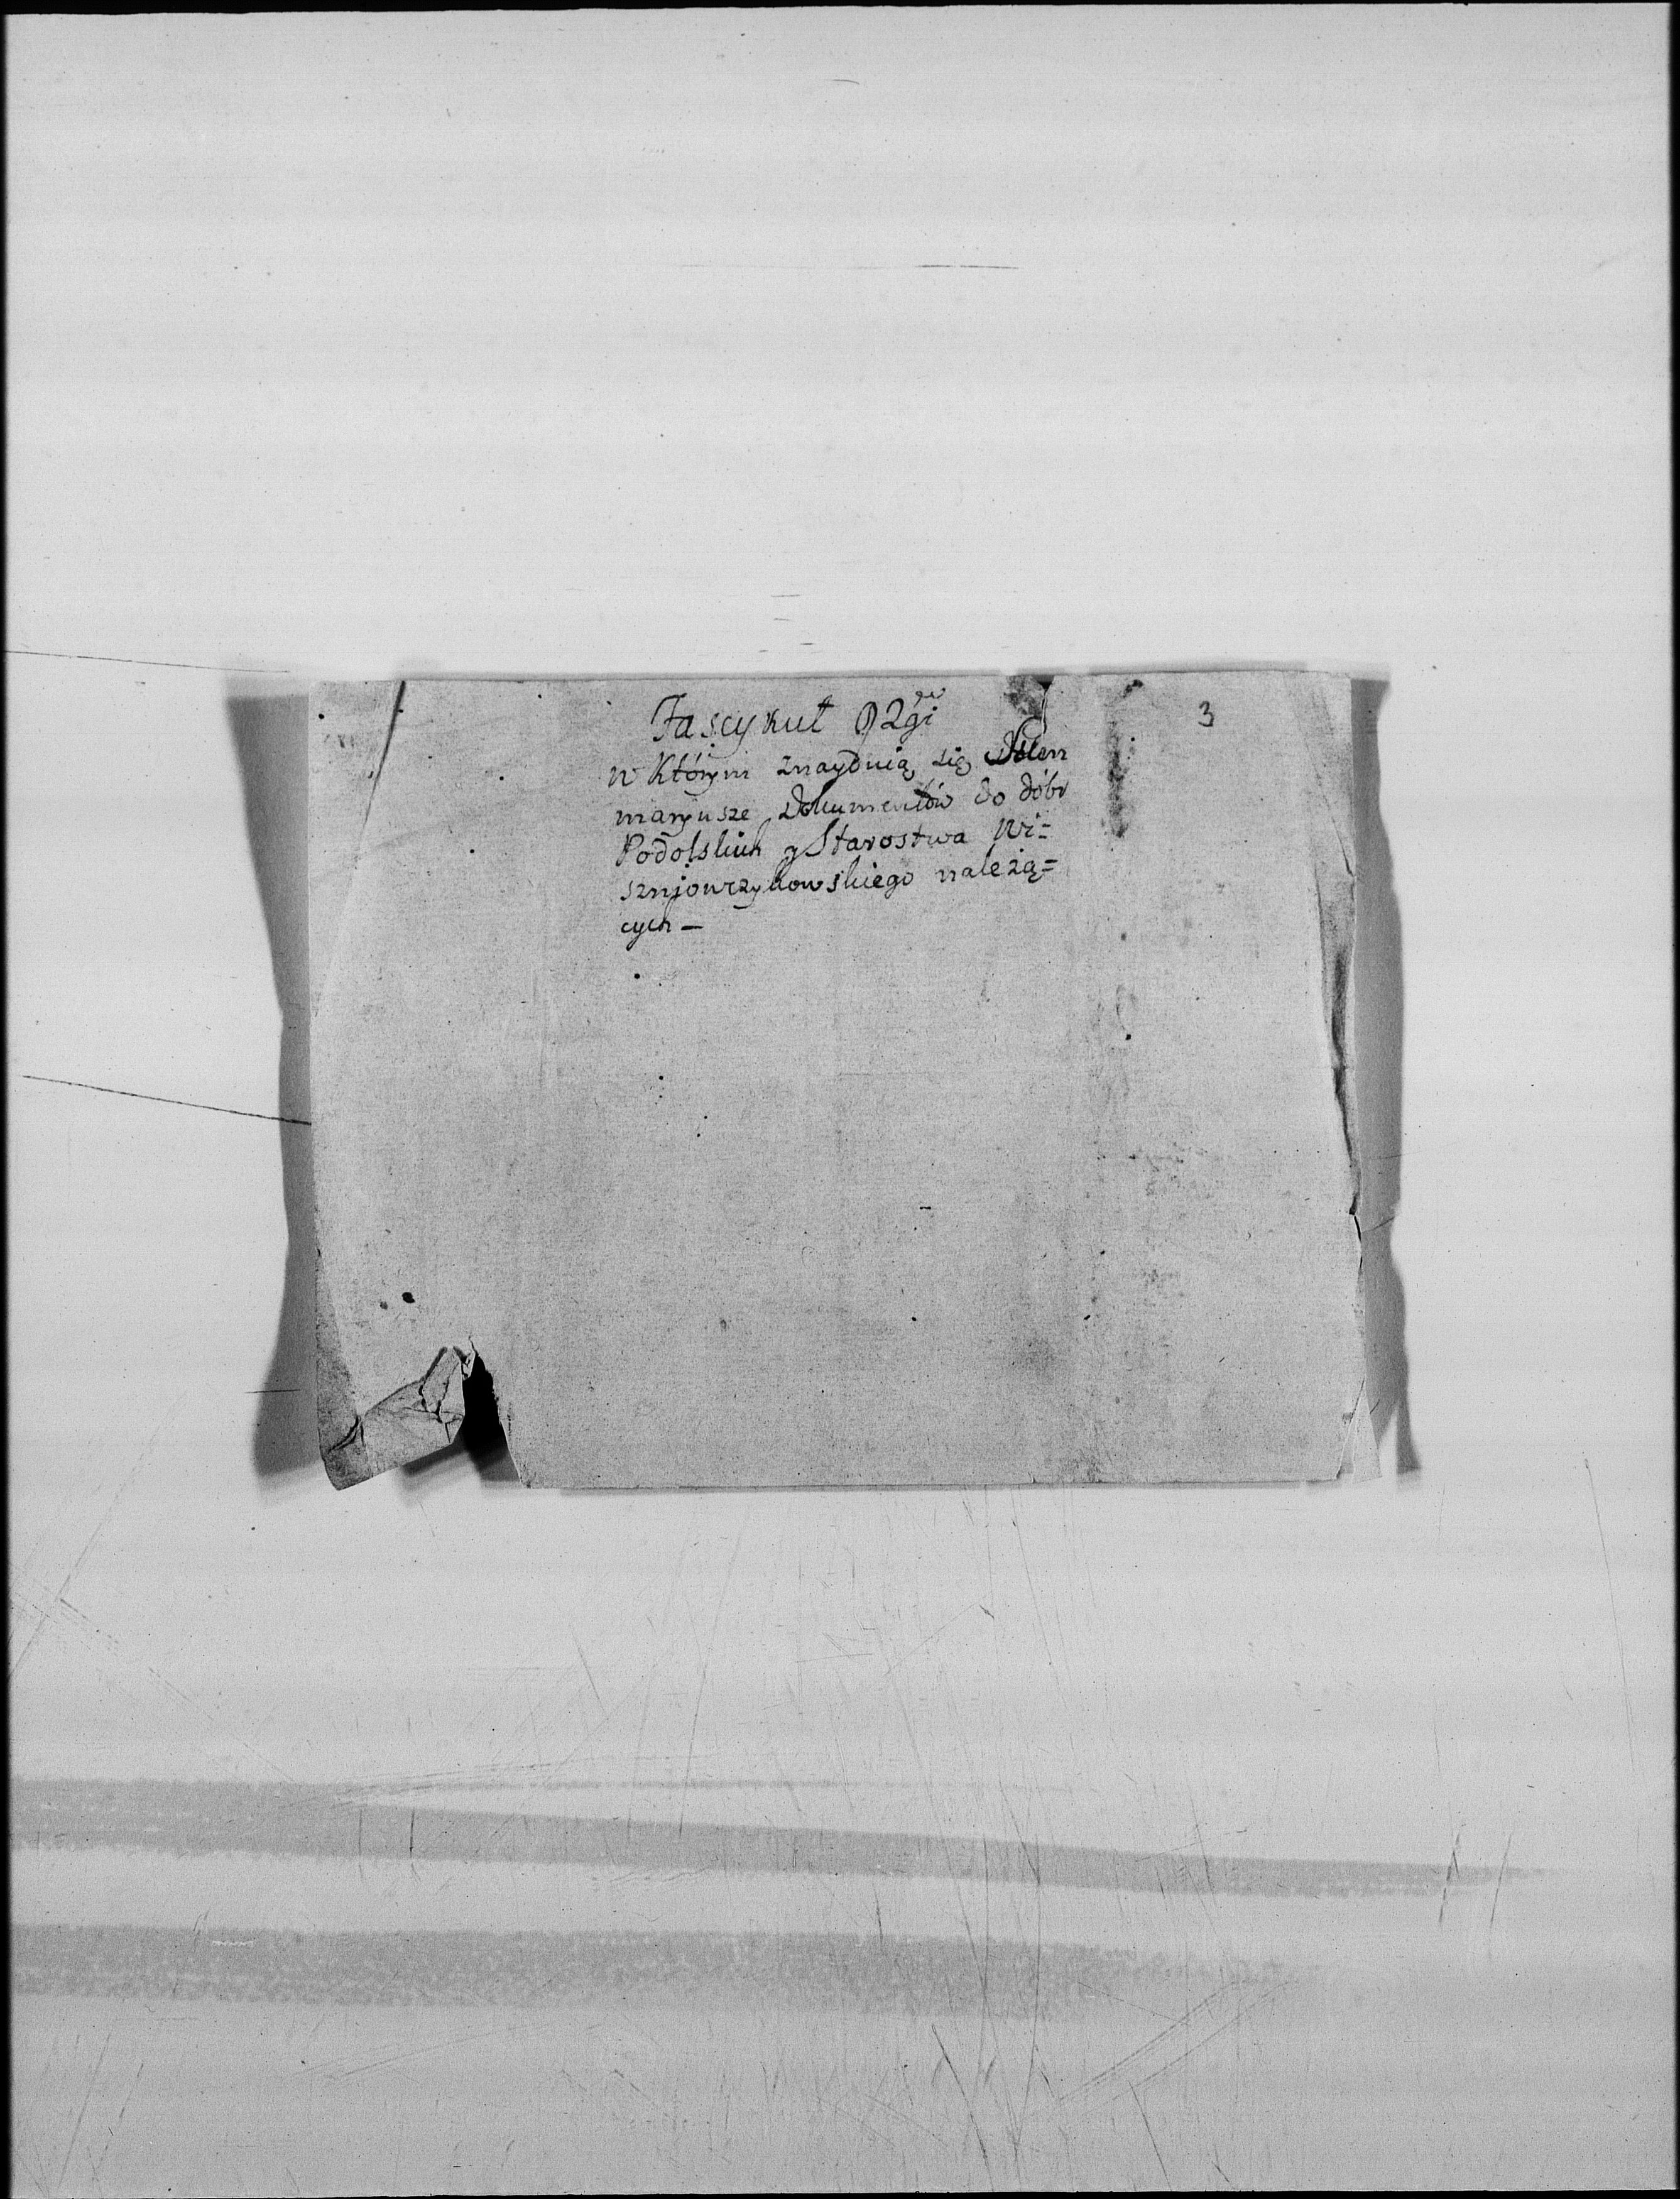 Fascykuł 2gi
3
w Którym znayduią się
maryusze Dokumentów do dóbr
Podolskich y Starostwa Wi=
szniowczykowskiego należą=
cych —